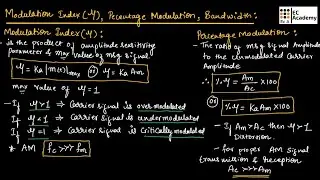 Modulation Index (μ), Pecentage Modulation, Bandwidth:
EC Academy
Modulation Index (μ):
- is the product of amplitude sensitivity
parameter & max value of msg signal
μ = Ka |m(t)|max (or) μ = Ka Am
max value of μ = 1
- If μ > 1 ⇒ Carrier signal is over modulated
If μ < 1 ⇒ Carrier signal is undermodulated
If μ = 1 ⇒ Carrier signal is critically modulated
* AM fc >>> fm
Percentage modulation:
- The ratio of msg signal Amplitude
to the unmodulated Carrier
Amplitude
∴ %μ = Am/Ac × 100
(or)
%μ = Ka Am × 100
- If Am > Ac then μ > 1
Distortion.
- for proper AM signal
transmission & Reception
Ac >>> Am